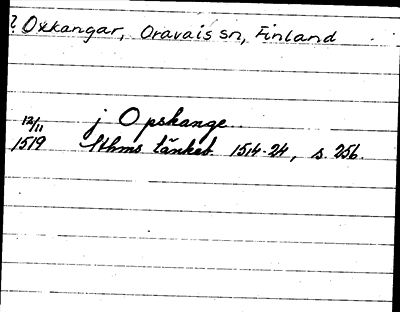 ? Oxkangar, Oravais sn, Finland
12/11 j Opskange
1519 Sthms tänkeb. 1514-24, s. 256.